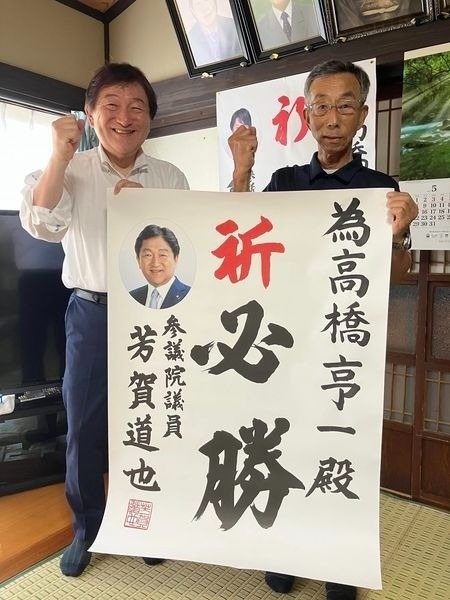 為高橋亨一殿
祈
必勝
参議院議員
芳賀道也
祈
5